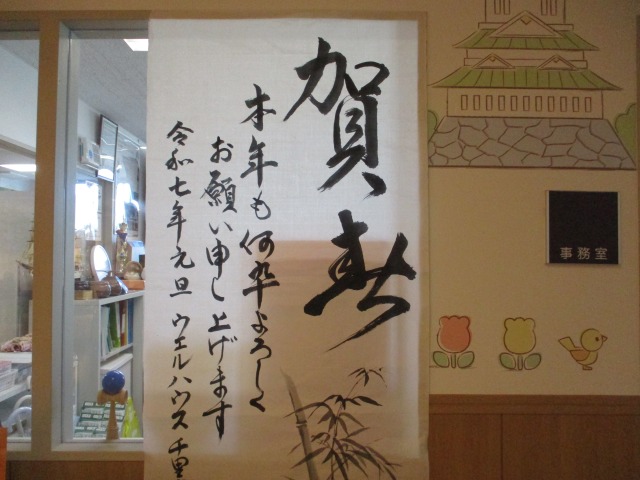 賀春
本年も何卒よろしく
お願い申し上げます
令和七年元旦 ウエルハウス千里
事務室